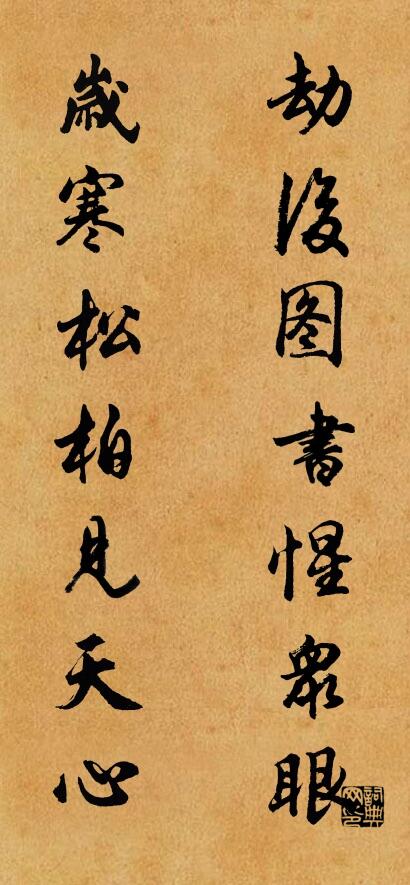 劫後图書惺眾眼
歲寒松柏見天心
詞典网印